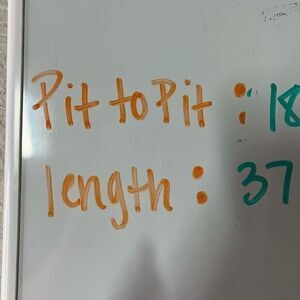 Pit to Pit : 18
length : 37